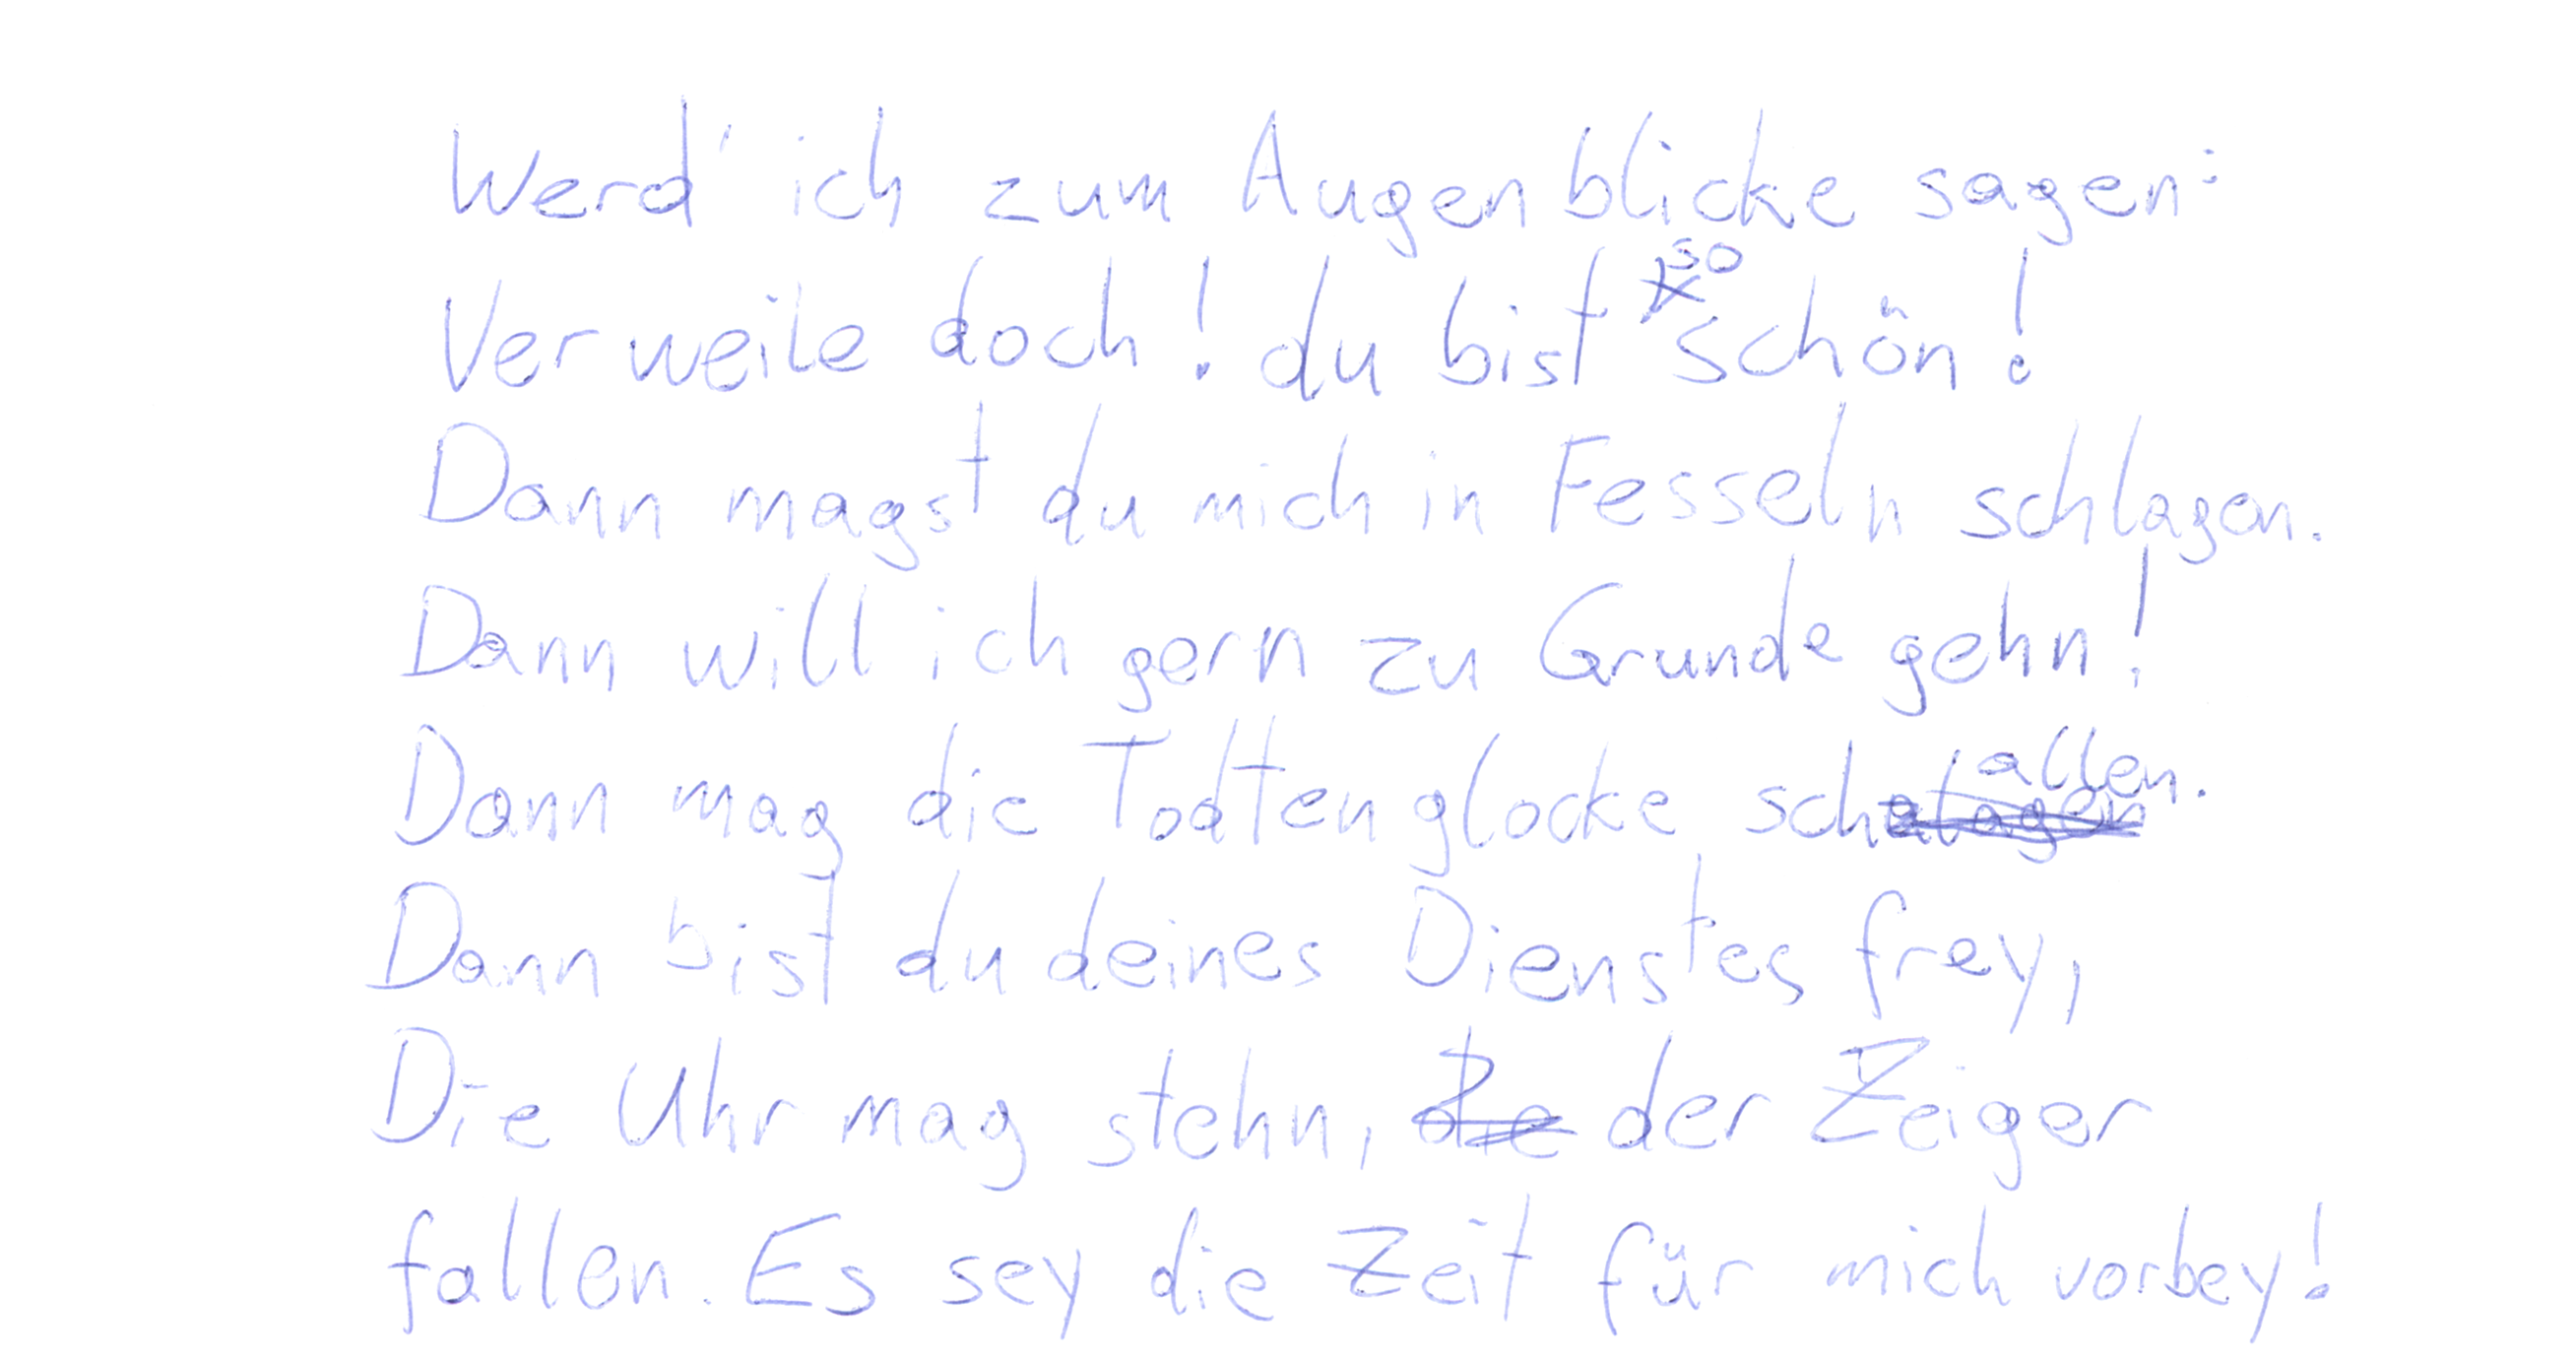 Werd' ich zum Augenblicke sagen:
Verweile doch! du bist so schön!
Dann magst du mich in Fesseln schlagen.
Dann will ich gern zu Grunde gehn!
Dann mag die Todtenglocke schallen.
Dann bist du deines Dienstes frey,
Die Uhr mag stehn, der Zeiger
fallen. Es sey die Zeit für mich vorbey!